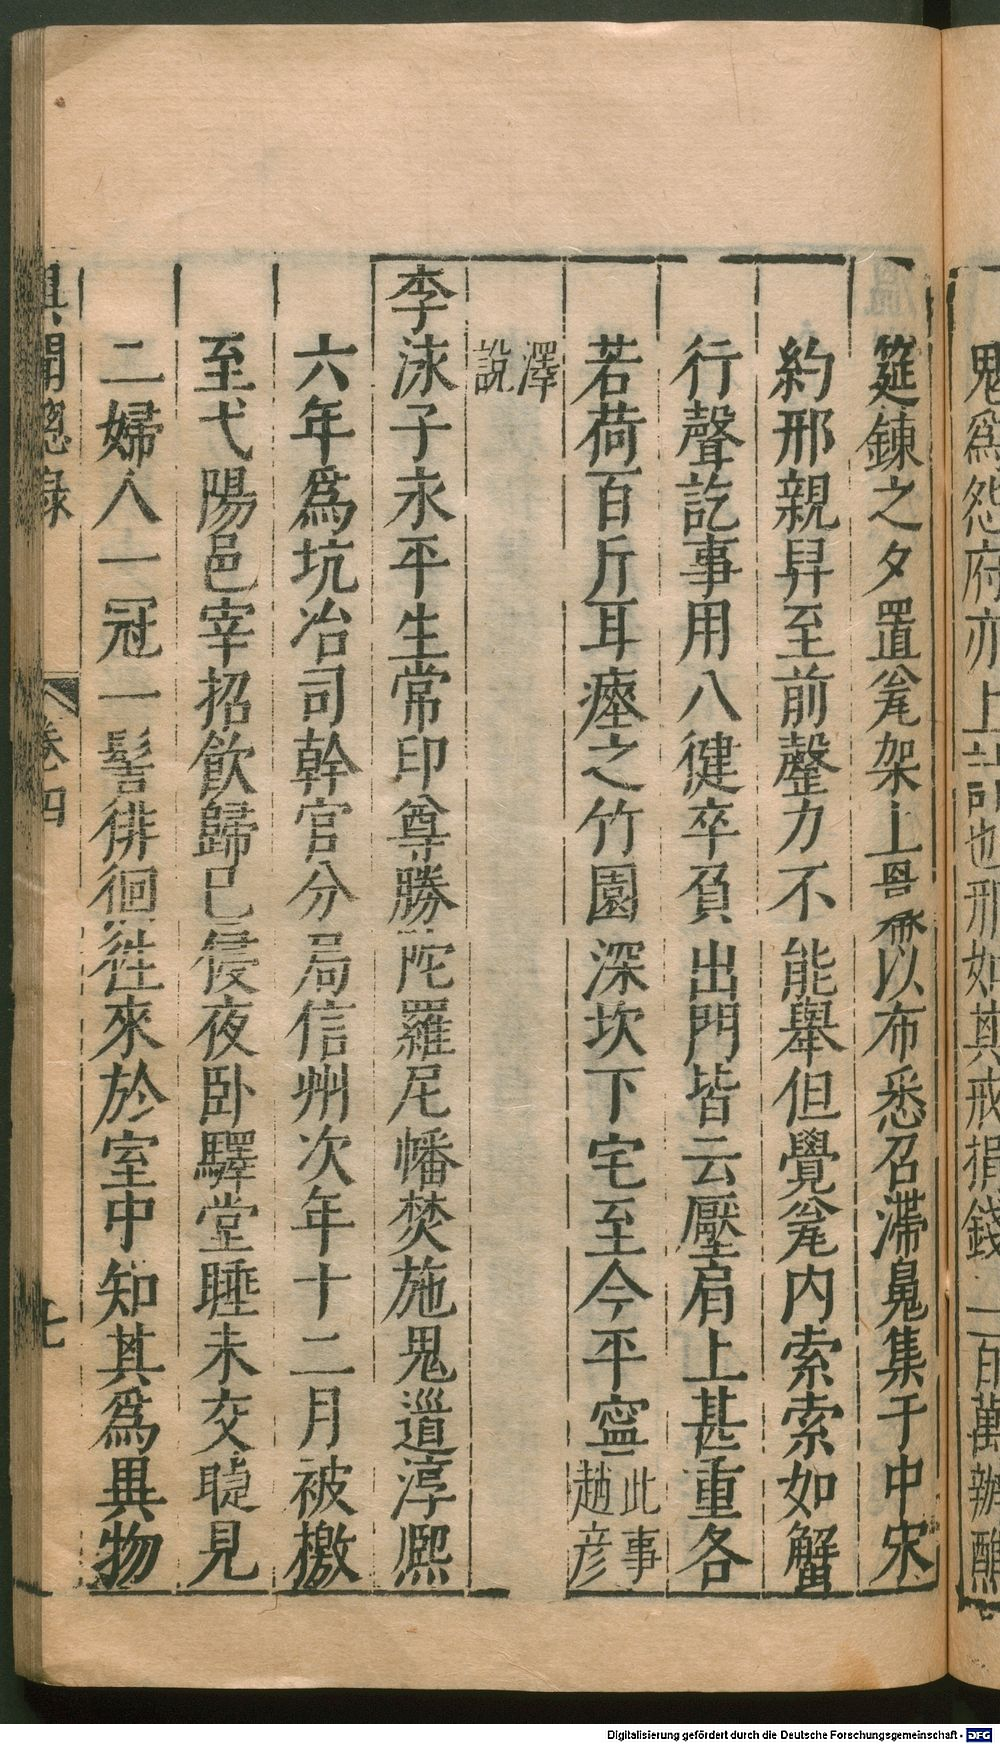 鬼爲怨府亦上訴也邢如其戒捐錢一百萬辦醮
筵鍊之夕置瓮架上冪以布悉召滯鬼集于中宋
約邢親舁至前罄力不能舉但覺瓮内索索如蟹
行聲訖事用八健卒負出門皆云壓肩上甚重各
若荷百斤耳瘞之竹園深坎下宅至今平寧此事趙彦
澤說
李泳子永平生常印尊勝陀羅尼幡焚施鬼道淳熙
六年爲坑冶司幹官分局信州次年十二月被檄
至弋陽邑宰招飲歸已侵夜卧驛堂睡未交睫見
二婦人一冠一髻徘徊徃來於室中知其爲異物
異聞總錄
卷四
七
Digitalisierung gefördert durch die Deutsche Forschungsgemeinschaft - DFG